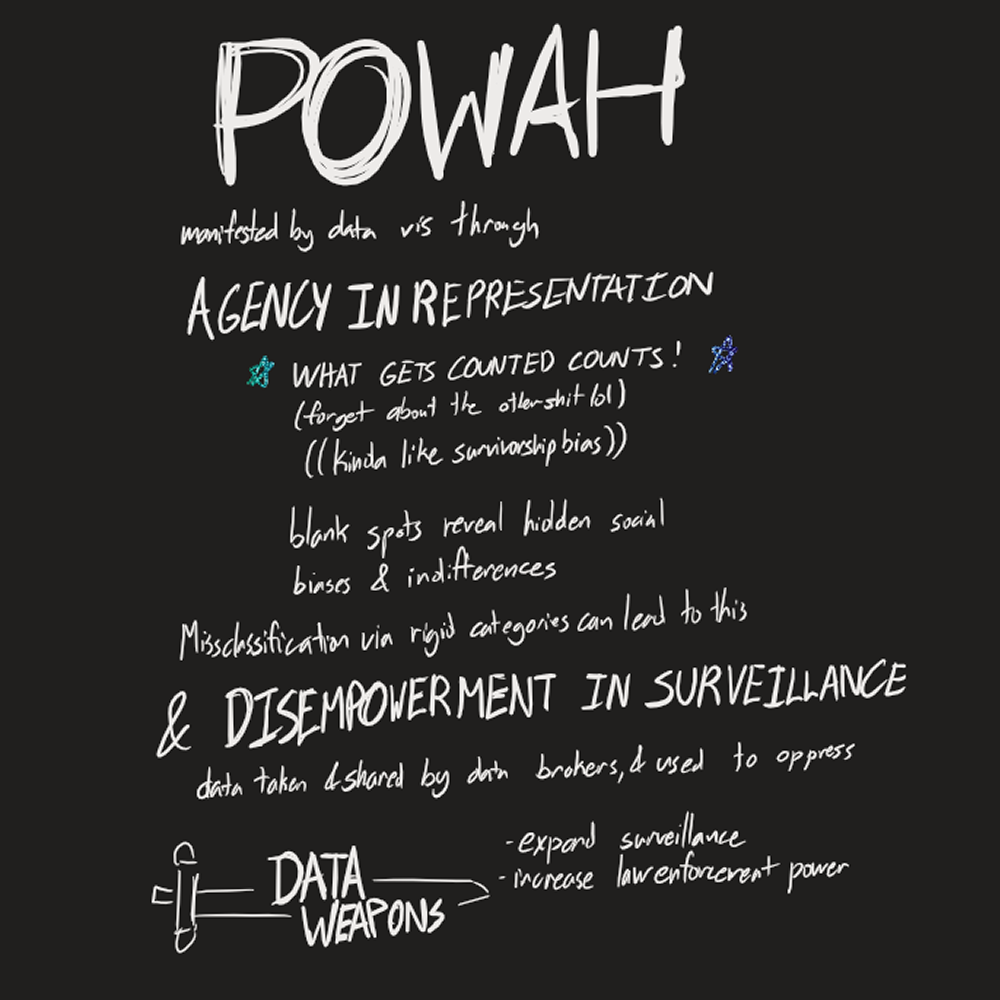 POWAH
manifested by data vis through
AGENCY IN REPRESENTATION
WHAT GETS COUNTED COUNTS!
(forget about the other shit lol)
((kinda like survivorship bias))
blank spots reveal hidden social
biases & indifferences
Missclassification via rigid categories can lead to this
& DISEMPOWERMENT IN SURVEILLANCE
data taken & shared by data brokers, & used to oppress
DATA
WEAPONS
-expand surveillance
-increase law enforcement power